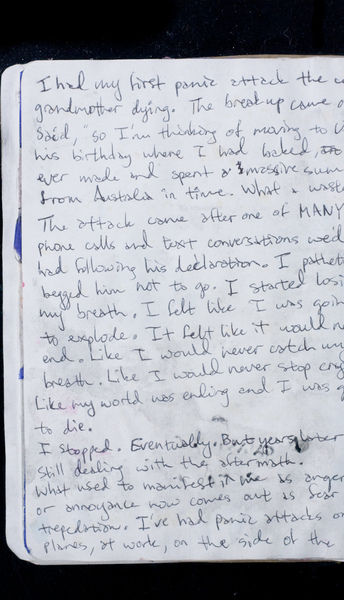 I had my first panic attack the
grandmother dying. The break up came
said, "so I'm thinking of moving to
his birthday where I had baked,
ever made and spent a massive sum
from Australia in time. What a wast
The attack came after one of MANY
phone calls and text conversations we'd
had following his declaration. I pathet
begged him not to go. I started losi
my breath. I felt like I was goin
to explode. It felt like it would n
end. Like I would never catch my
breath. Like I would never stop cry
Like my world was ending and I was g
to die.
I stopped. Eventually. But years later
still dealing with the aftermath.
What used to manifest in me as anger
or annoyance now comes out as fear
trepidation. I've had panic attacks o
planes, at work, on the side of the